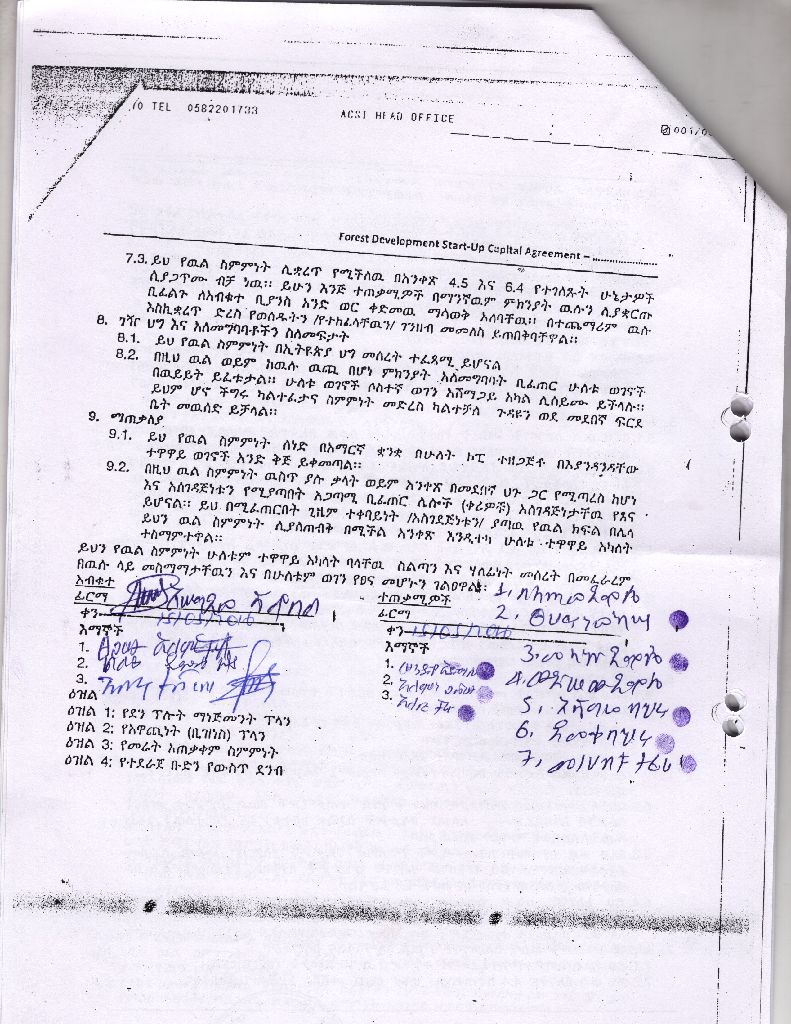 /0 TEL 0582201733 ACSI HEAD OFFICE 001/0
Forest Development Start-Up Capital Agreement – ......................
7.3. ይህ የዉል ስምምነት ሊቋረጥ የሚችለዉ በአንቀጽ 4.5 እና 6.4 የተገለጹት ሁኔታዎች
ሲያጋጥሙ ብቻ ነዉ። ይሁን እንጅ ተጠቃሚዎች በማንኛዉም ምክንያት ዉሉን ሊያቋርጡ
ቢፈልጉ ለአብቁተ ቢያንስ አንድ ወር ቀድመዉ ማሳወቅ አለባቸዉ። በተጨማሪም ዉሉ
እስኪቋረጥ ድረስ የወሰዱትን /የተከፈላቸዉን/ ገንዘብ መመለስ ይጠበቅባቸዋል።
8. ገዥ ህግ እና አለመግባባቶችን ስለመፍታት
8.1. ይህ የዉል ስምምነት በኢትዩጵያ ህግ መሰረት ተፈጻሚ ይሆናል
8.2. በዚህ ዉል ወይም ከዉሉ ዉጪ በሆነ ምክንያት አለመግባባት ቢፈጠር ሁለቱ ወገኖች
በዉይይት ይፈቱታል። ሁለቱ ወገኖች ሶስተኛ ወገን አሸማጋይ አካል ሊሰይሙ ይችላሉ።
ይህም ሆኖ ችግሩ ካልተፈታና ስምምነት መድረስ ካልተቻለ ጉዳዩን ወደ መደበኛ ፍርድ
ቤት መዉሰድ ይቻላል።
9. ማጠቃለያ
9.1. ይህ የዉል ስምምነት ሰነድ በአማርኛ ቋንቋ በሁለት ኮፒ ተዘጋጅቶ በእያንዳንዳቸው
ተዋዋይ ወገኖች አንድ ቅጅ ይቀመጣል።
9.2. በዚህ ዉል ስምምነት ዉስጥ ያሉ ቃላት ወይም አንቀጽ በመደበኛ ህጉ ጋር የሚጣረስ ከሆነ
እና አስገዳጅነቱን የሚያጣበት አጋጣሚ ቢፈጠር ሌሎች (ቀሪዎች) አስገዳጅነታቸዉ የጸና
ይሆናል። ይህ በሚፈጠርበት ጊዜም ተቀባይነት /አስገዳጅነቱን/ ያጣዉ የዉል ክፍል በሌላ
ይህን ዉል ስምምነት ሊያስጠብቅ በሚችል አንቀጽ እንዲተካ ሁለቱ ተዋዋይ አካላት
ተስማምተዋል።
ይህን የዉል ስምምነት ሁለቱም ተዋዋይ አካላት ባላቸዉ ስልጣን እና ሃላፊነት መሰረት በመፈራረም
በዉሉ ላይ መስማማታቸዉን እና በሁለቱም ወገን የፀና መሆኑን ገልፀዋል፡
አብቁተ
ፊርማ
ቀን 15/05/2016
እማኞች
1.
2.
3.
ተጠቃሚዎች
ፊርማ
ቀን 15/05/2016
እማኞች
1.
2.
3.
1.
2.
3.
4.
5.
6.
7.
ዕዝል
ዕዝል 1: የደን ፕሎት ማነጅመንት ፕላን
ዕዝል 2: የአዋጪነት (ቢዝነስ) ፕላን
ዕዝል 3: የመሬት አጠቃቀም ስምምነት
ዕዝል 4: የተደራጀ ቡድን የውስጥ ደንብ